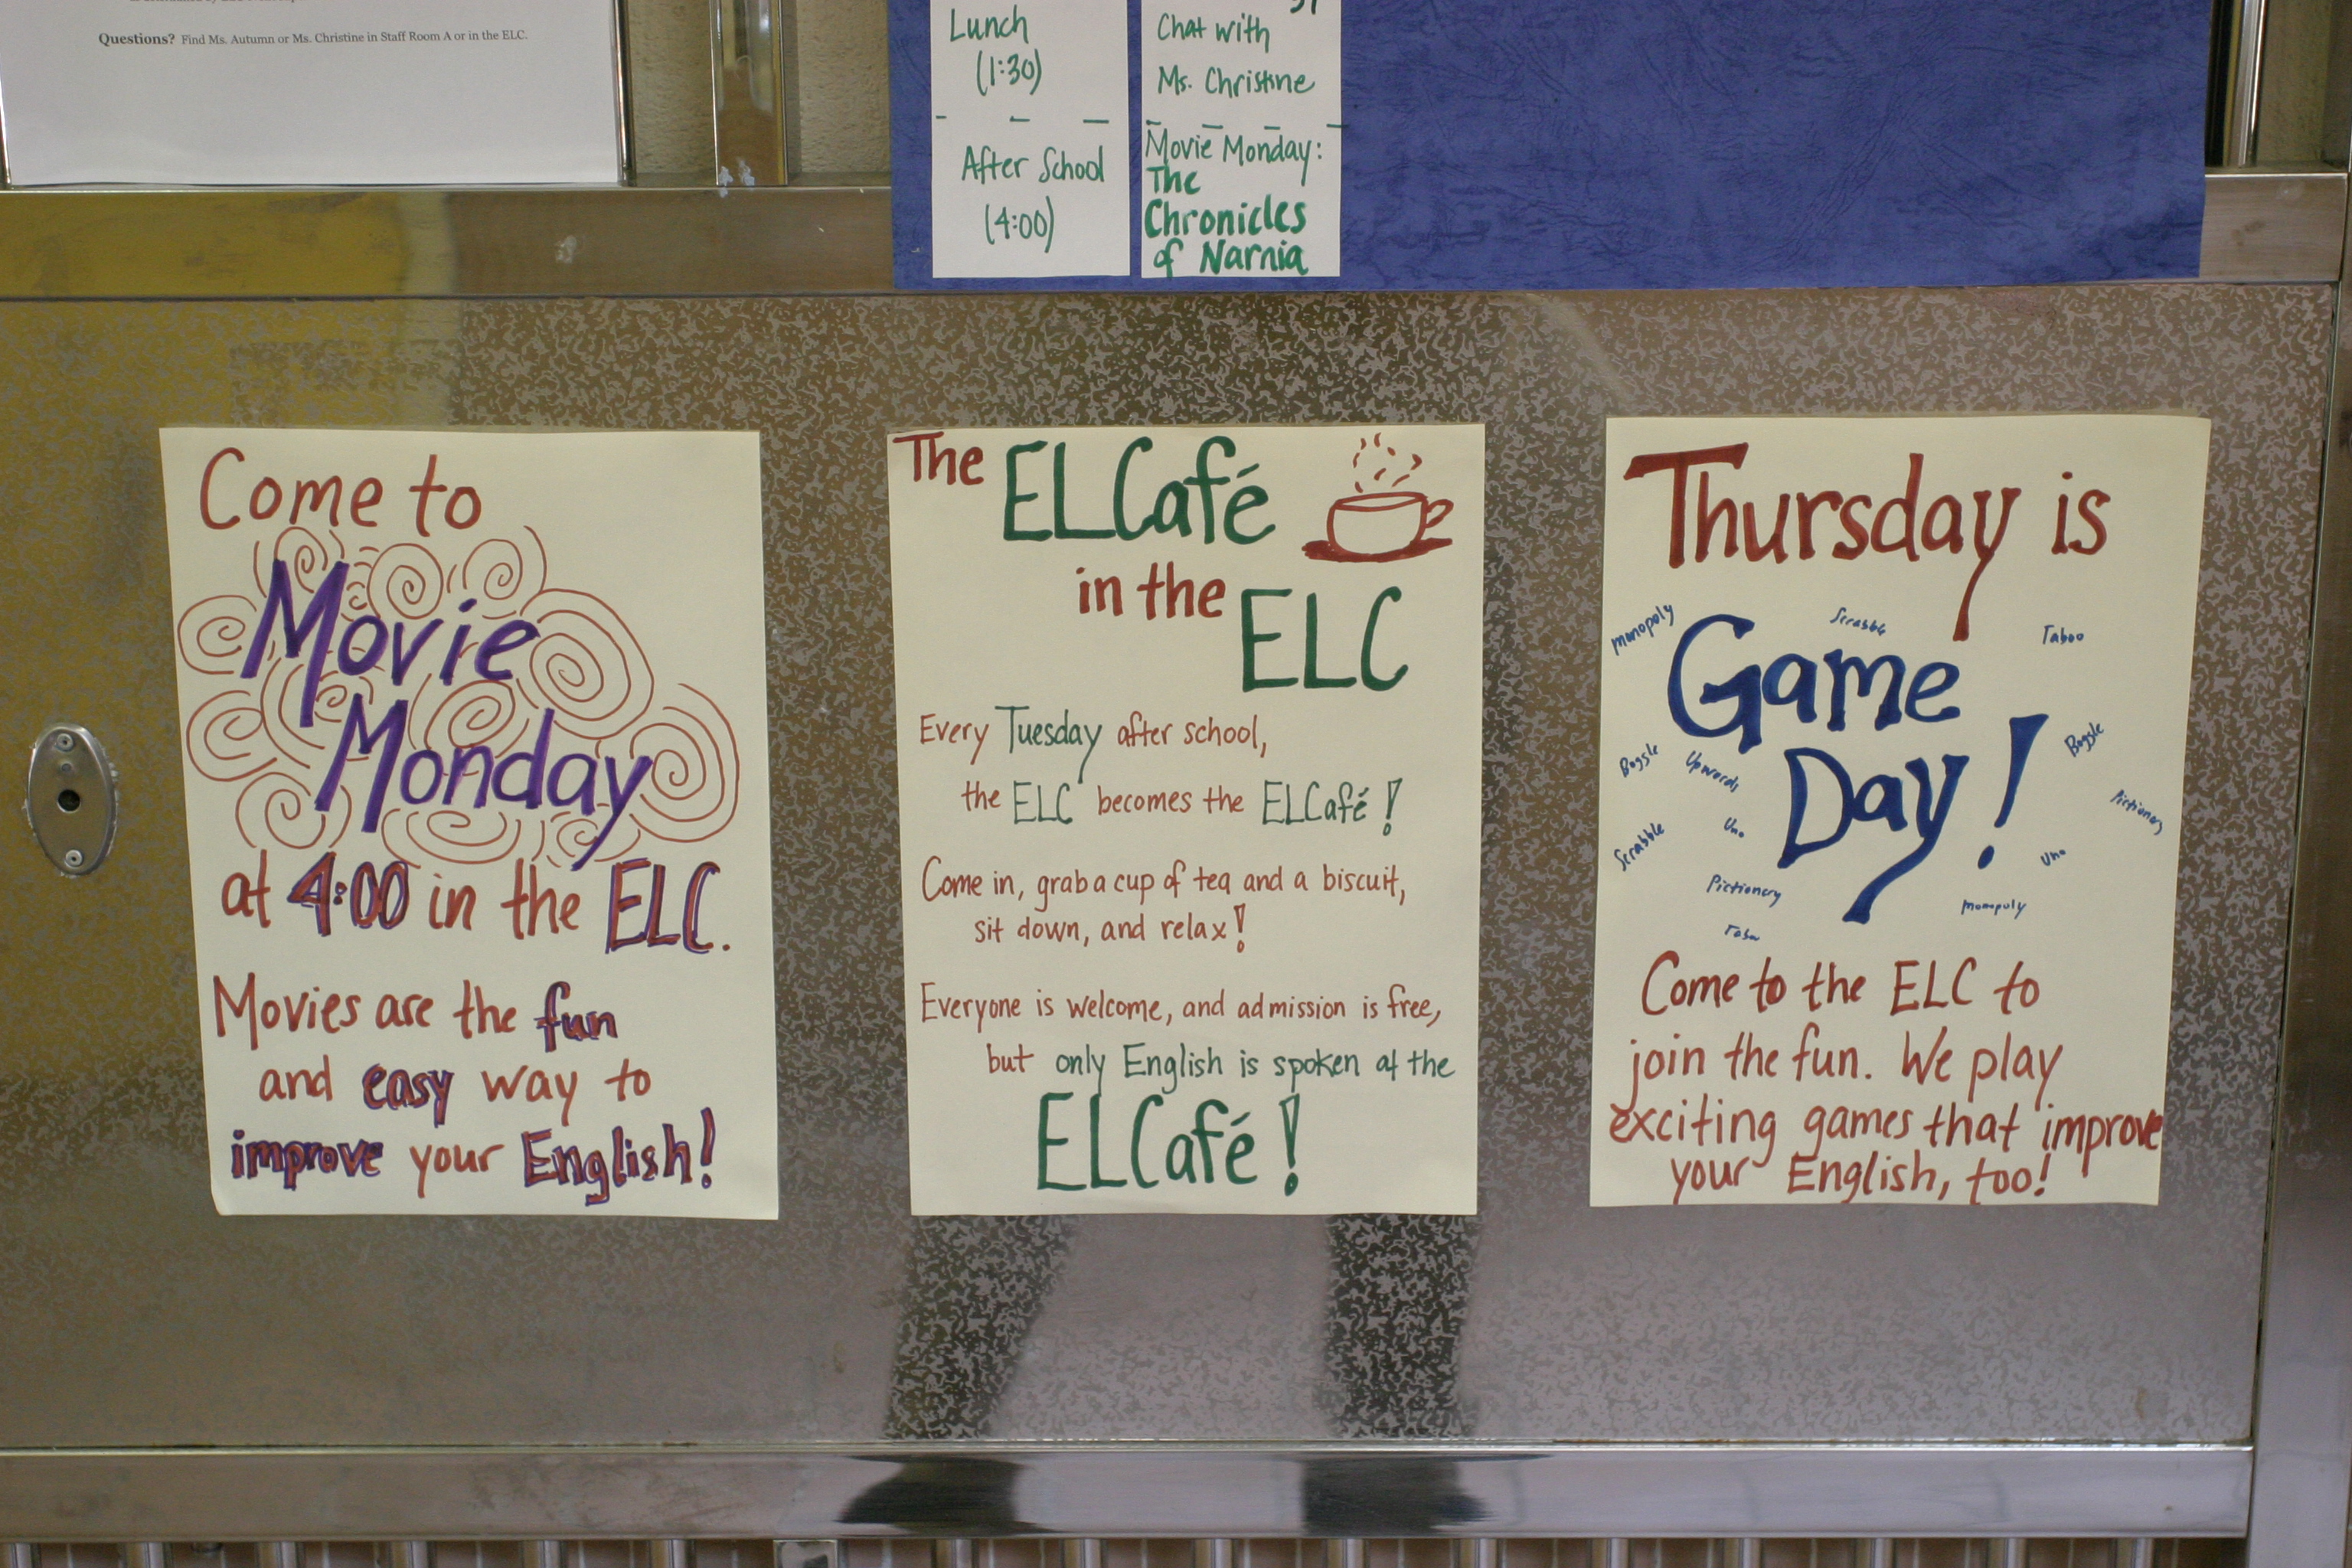 Questions? Find Ms. Autumn or Ms. Christine in Staff Room A or in the ELC.
Lunch
(1:30)
After School
(4:00)
31
Chat with
Ms. Christine
Movie Monday:
The
Chronicles
of Narnia
Come to
Movie
Monday
at 4:00 in the ELC.
Movies are the fun
and easy way to
improve your English!
The ELCafé
in the
ELC
Every Tuesday after school,
the ELC becomes the ELCafé!
Come in, grab a cup of tea and a biscuit,
sit down, and relax!
Everyone is welcome, and admission is free,
but only English is spoken at the
ELCafé!
Thursday is
Monopoly
Scrabble
Taboo
Game
Day!
Boggle
Upwords
Boggle
Pictionary
Scrabble
Uno
Uno
Pictionary
Monopoly
Taboo
Come to the ELC to
join the fun. We play
exciting games that improve
your English, too!